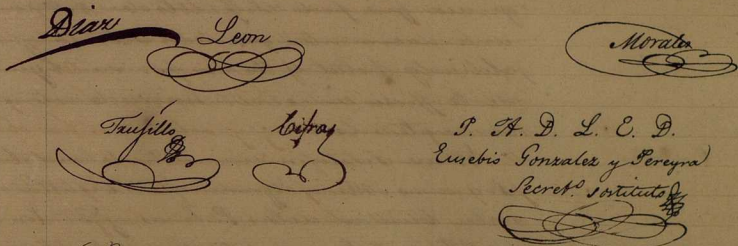 Diaz
Leon
Morales
Trujillo
Cifra
P. A. D. L. E. D.
Eusebio Gonzalez y Pereyra
Secret.º sostituto